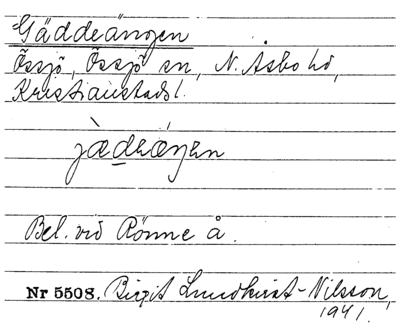 Gäddeängen
Össjö, Össjö sn, N. Åsbo hd,
Kristianstads l.
jæ̀dæǽŋen
Bel. vid Rönne å.
Nr 5508. Birgit Lundkvist-Nilsson,
1941.